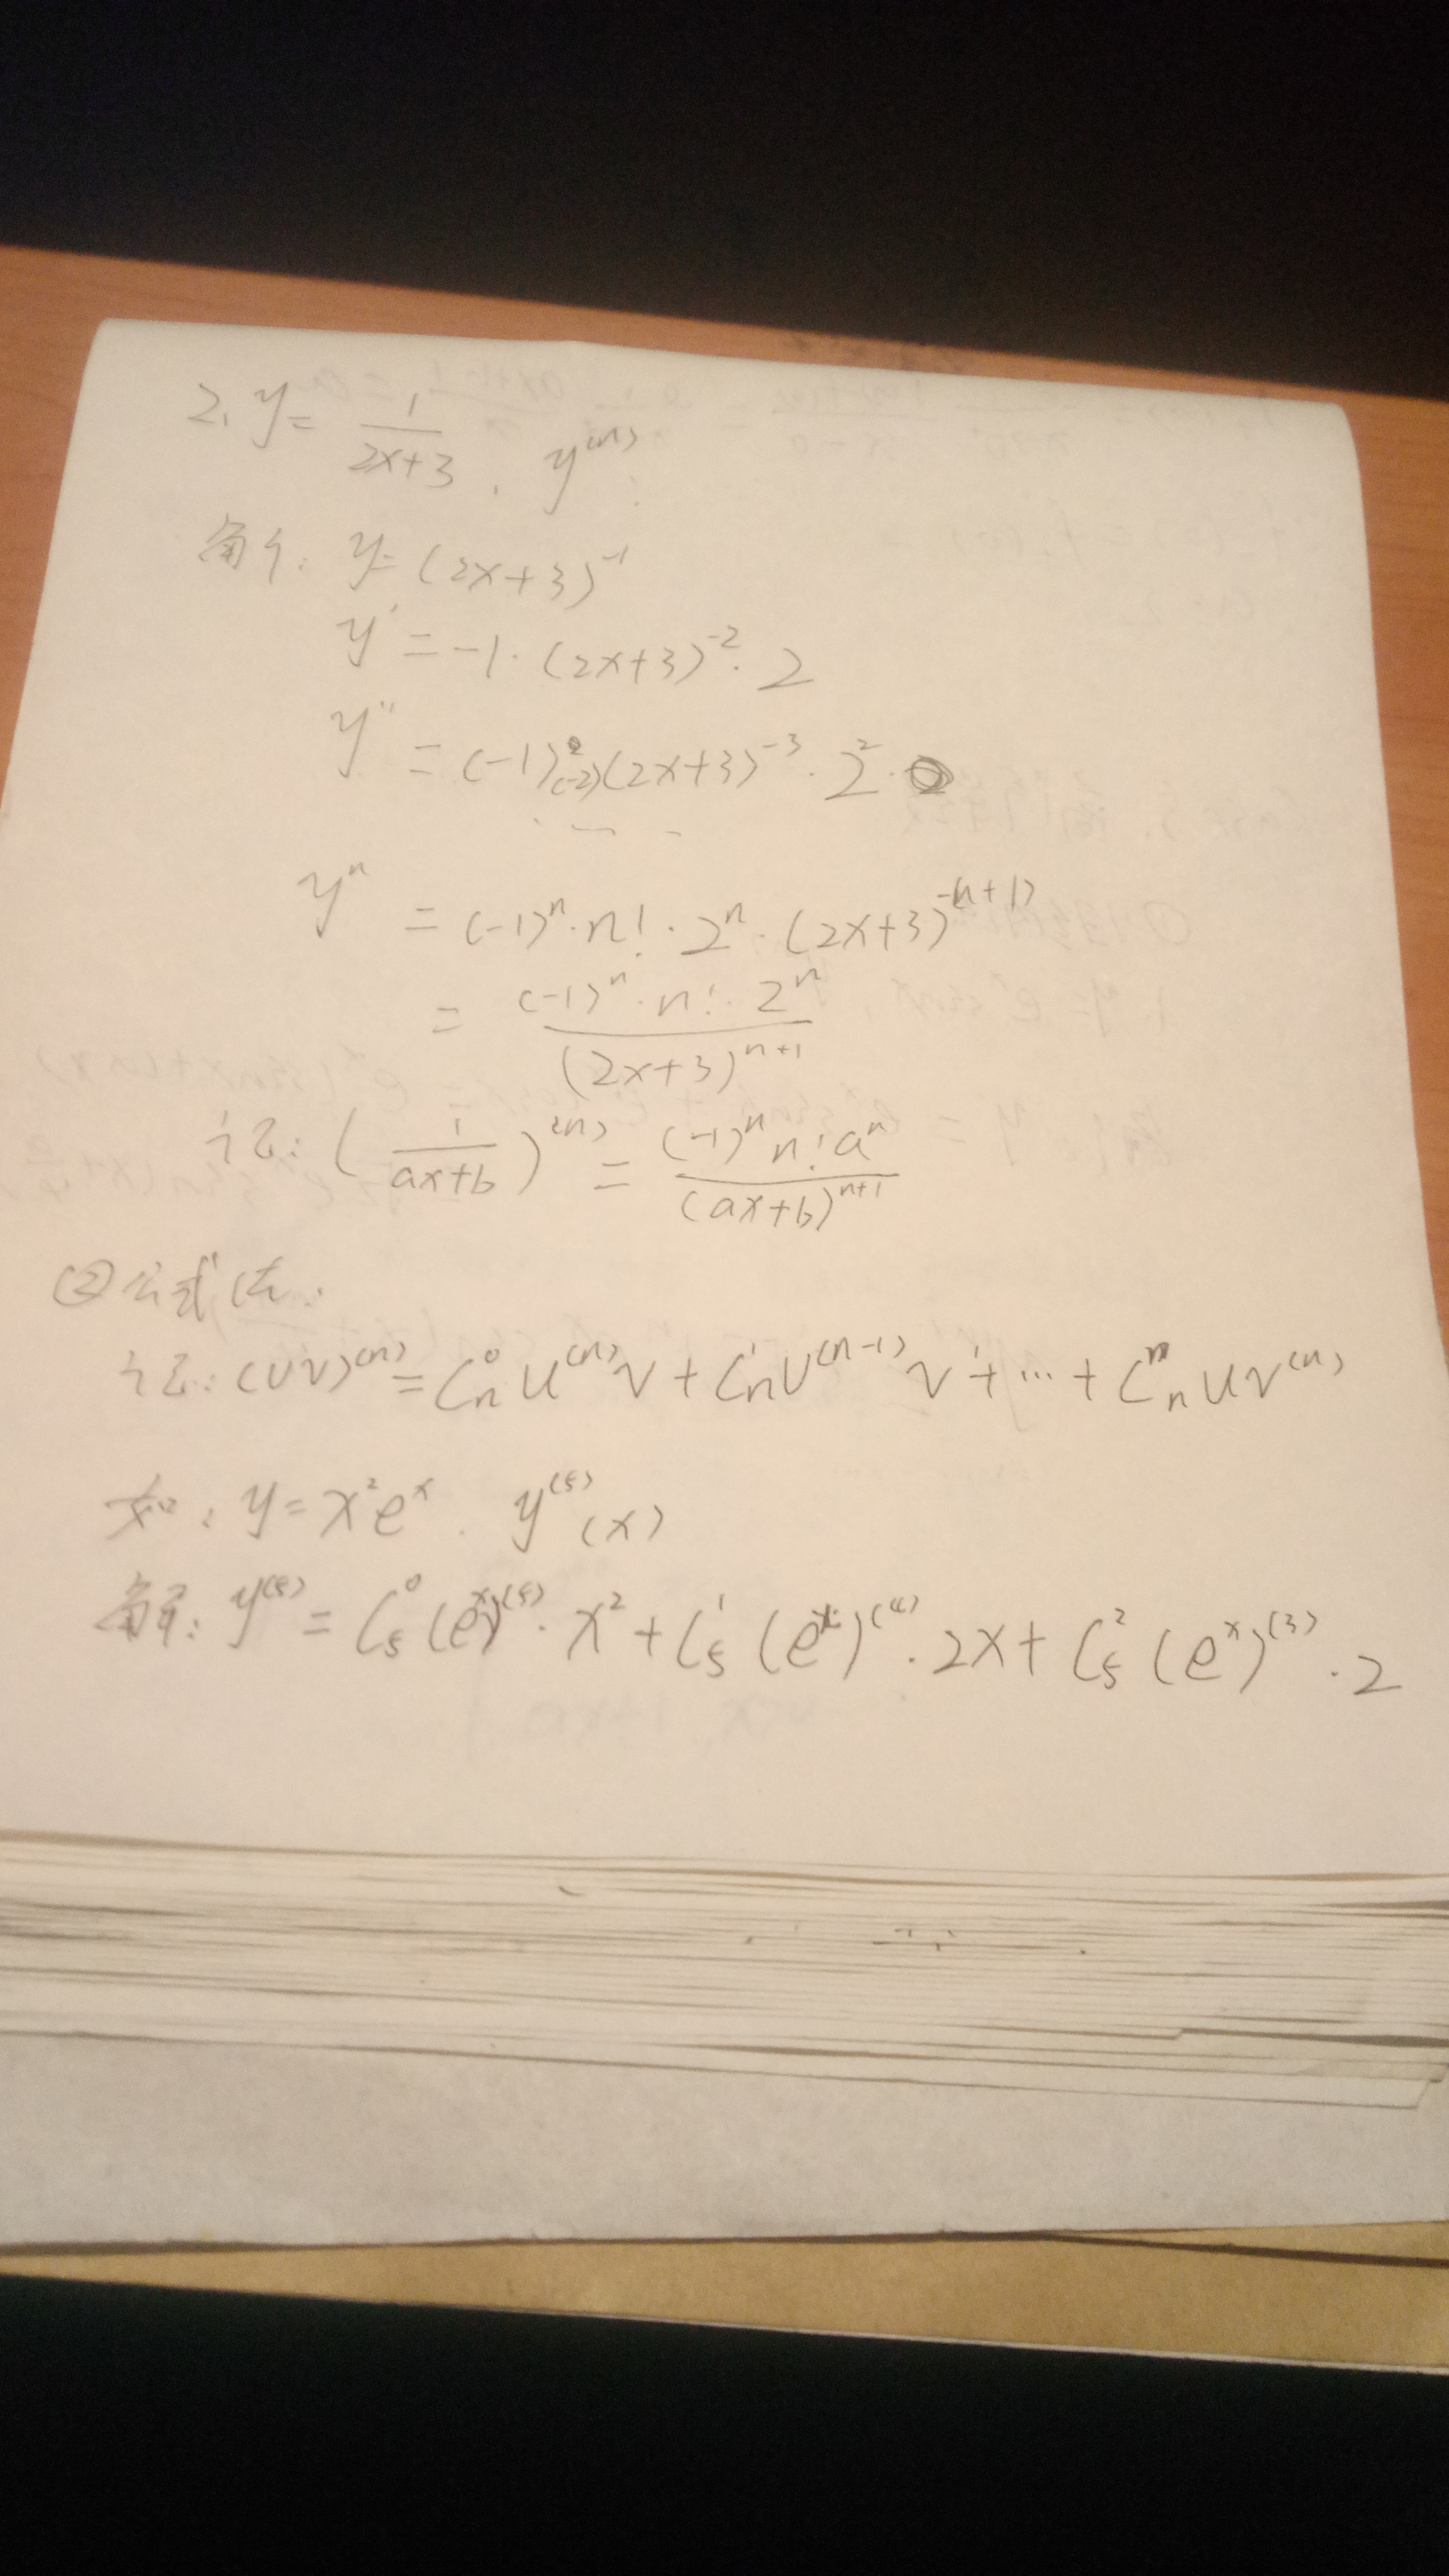 2. y = 1/(2x+3), y^(n)
解: y = (2x+3)^-1
y' = -1·(2x+3)^-2·2
y'' = (-1)(-2)(2x+3)^-3·2^2·
y^n = (-1)^n·n!·2^n·(2x+3)^-(n+1)
= (-1)^n·n!·2^n/(2x+3)^(n+1)
记: (1/(ax+b))^(n) = (-1)^n n! a^n/(ax+b)^(n+1)
② 公式法:
记: (uv)^(n) = C_n^0 u^(n) v + C_n^1 u^(n-1) v' + ··· + C_n^n u v^(n)
如: y = x^2 e^x. y^(5)(x)
解: y^(5) = C_5^0 (e^x)^(5)·x^2 + C_5^1 (e^x)^(4)·2x + C_5^2 (e^x)^(3)·2